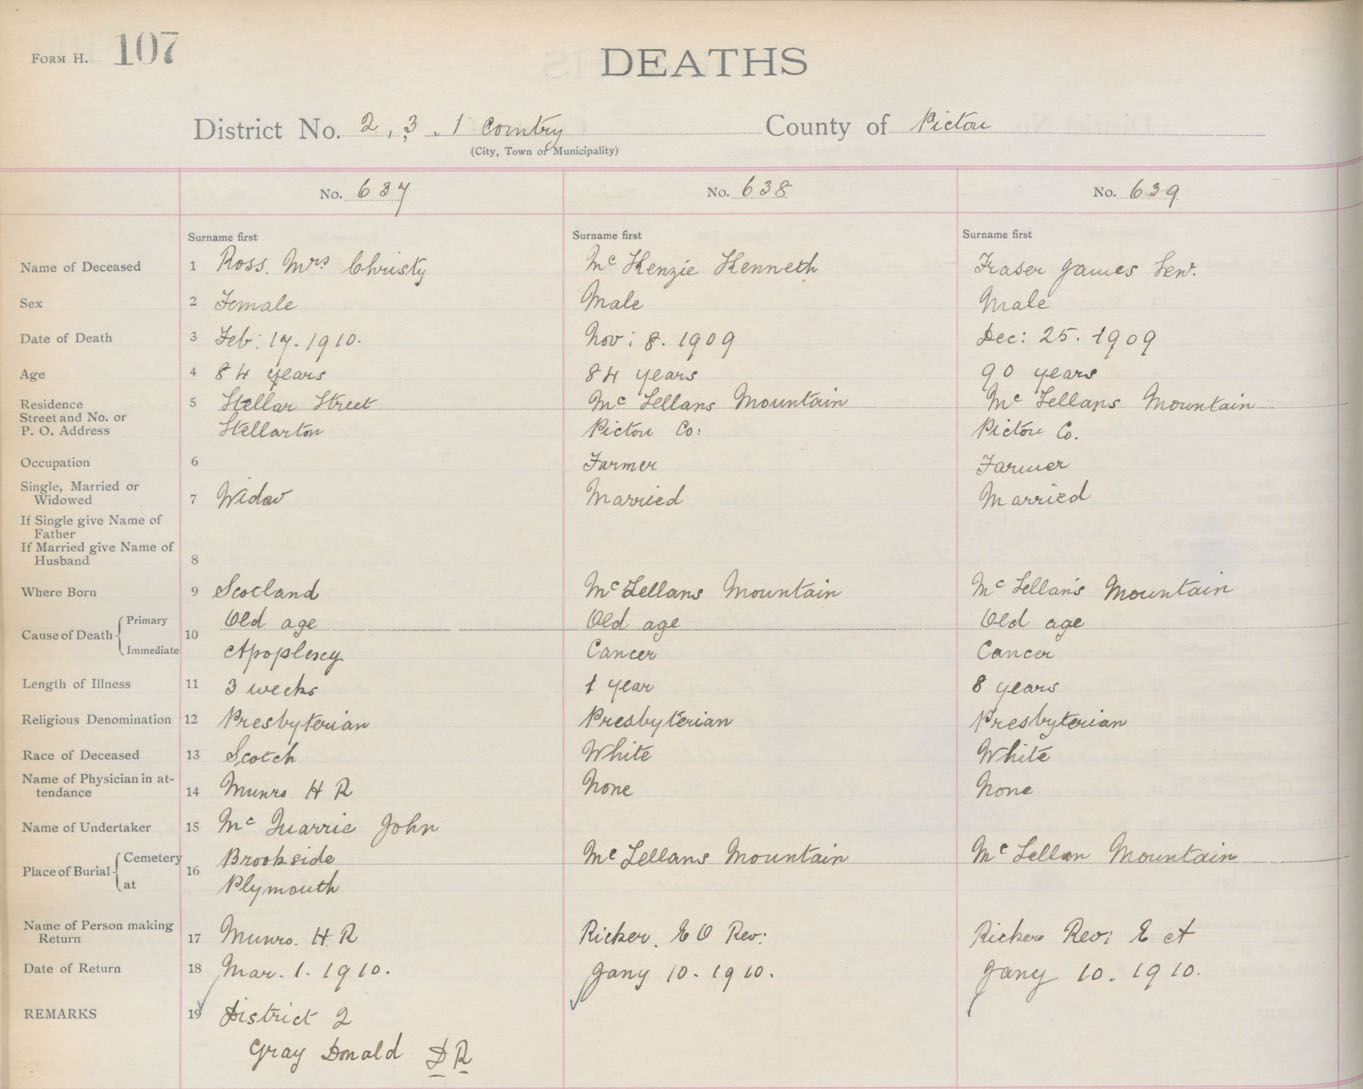 FORM H. 107
DEATHS
District No. 2, 3, 1 Country County of Pictou
(City, Town or Municipality)
No. 637 No. 638 No. 639
Surname first Surname first Surname first
Name of Deceased 1 Ross. Mrs Christy McKenzie Kenneth Fraser James Senr.
Sex 2 Female Male Male
Date of Death 3 Feb: 17. 1910. Nov: 8. 1909 Dec: 25. 1909
Age 4 84 years 84 years 90 years
Residence 5 Stellar Street McLellans Mountain McLellans Mountain
Street and No. or
P. O. Address Stellarton Pictou Co: Pictou Co.
Occupation 6 Farmer Farmer
Single, Married or
Widowed 7 Widow Married Married
If Single give Name of
Father
If Married give Name of
Husband 8
Where Born 9 Scotland McLellans Mountain McLellan's Mountain
Primary Old age Old age Old age
Cause of Death 10
Immediate Apoplexy Cancer Cancer
Length of Illness 11 3 weeks 1 year 8 years
Religious Denomination 12 Presbyterian Presbyterian Presbyterian
Race of Deceased 13 Scotch White White
Name of Physician in at-
tendance 14 Munro H R None None
Name of Undertaker 15 McQuarrie John
Cemetery Brookside McLellans Mountain McLellan Mountain
Place of Burial 16
at Plymouth
Name of Person making
Return 17 Munro. H R Ricker. E O Rev: Ricker Rev: E A
Date of Return 18 Mar. 1. 1910. Jany 10. 1910. Jany 10. 1910.
REMARKS 19 District 2
Gray Donald D R